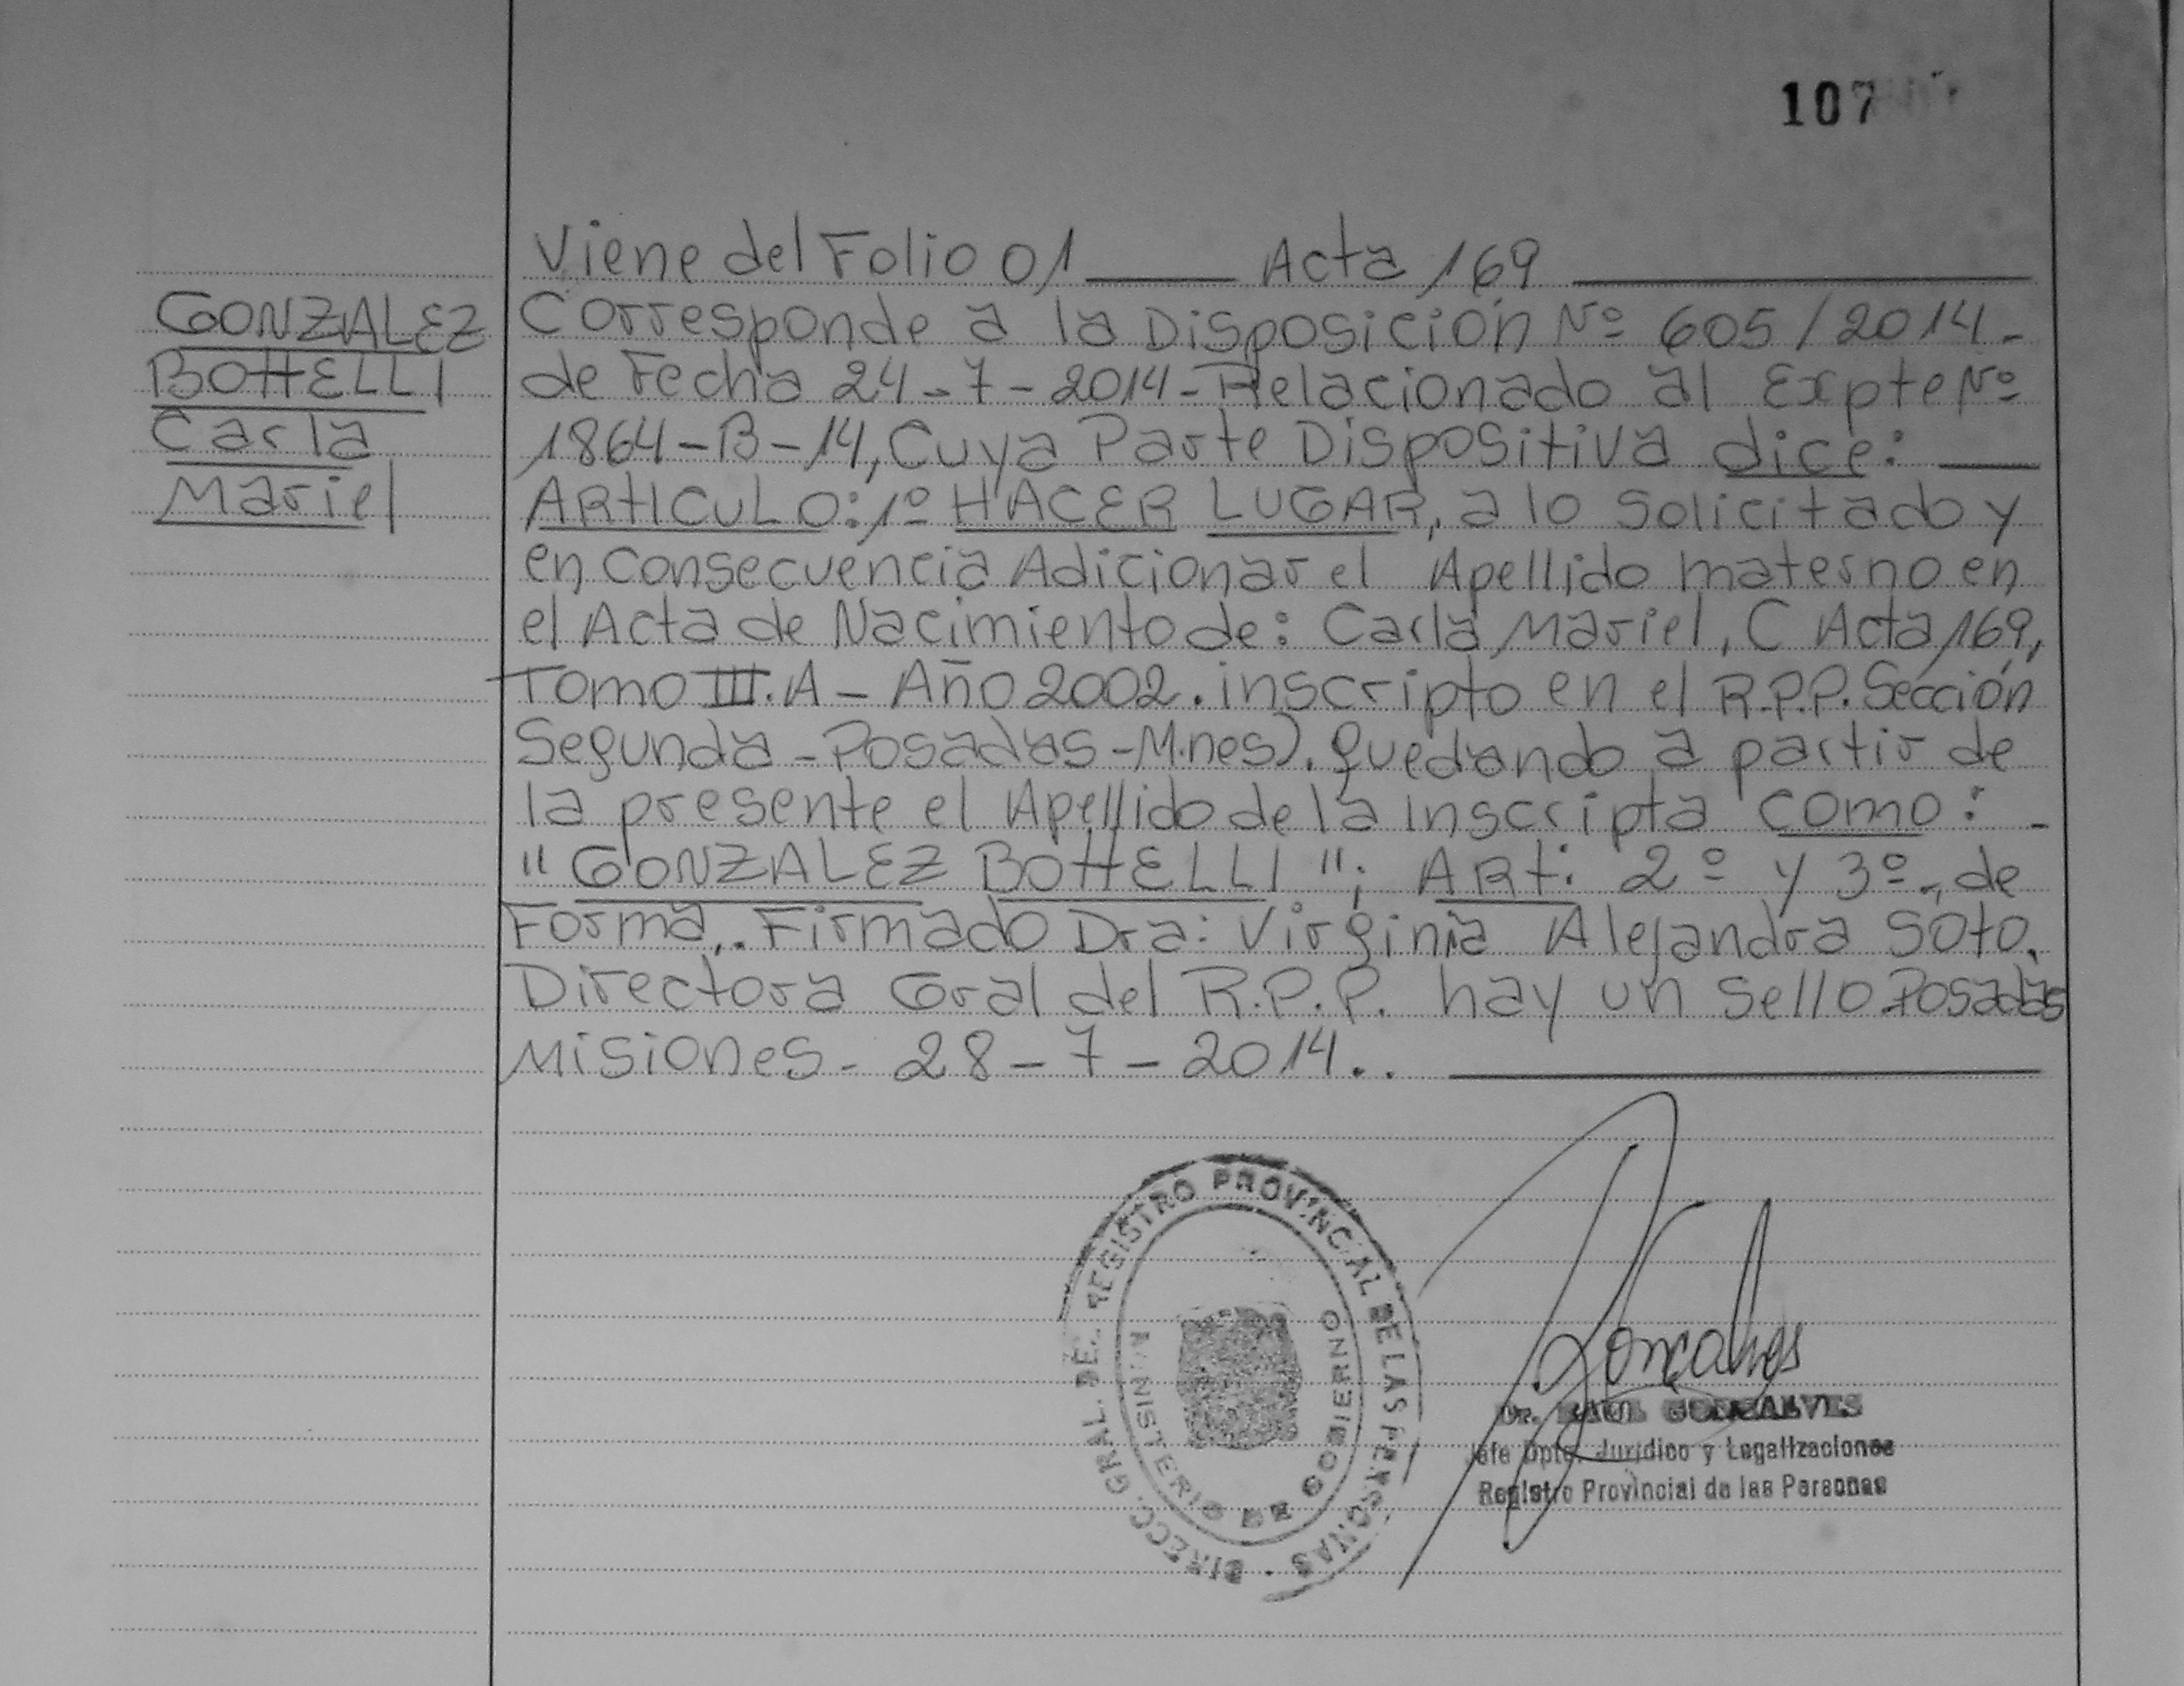 107
Viene del Folio 01 ____ Acta 169 ____
GONZALEZ
BOttELLI
Carla
Mariel
Corresponde a la Disposición Nº 605/2014-
de Fecha 24-7-2014- Relacionado al Expte Nº
1864-B-14, Cuya Parte Dispositiva dice: ____
ARtICULO: 1º HACER LUGAR, a lo Solicitado y
en Consecuencia Adicionar el Apellido materno en
el Acta de Nacimiento de: Carla Mariel, C Acta 169,
Tomo III. A - Año 2002. inscripto en el R.P.P. Sección
Segunda - Posadas - M.nes). Quedando a partir de
la presente el Apellido de la inscripta como: -
"GONZALEZ BOttELLI"; ARt: 2º y 3º., de
Forma,. Firmado Dra: Virginia Alejandra Soto.
Directora Gral del R.P.P. hay un Sello Posadas
Misiones - 28-7-2014.. ____
DIRECC. GRAL. DEL REGISTRO PROVINCIAL DE LAS PERSONAS
MINISTERIO DE GOBIERNO
Gonçalves
Dr. RAUL GONSALVES
Jefe Dpto. Jurídico y Legalizaciones
Registro Provincial de las Personas